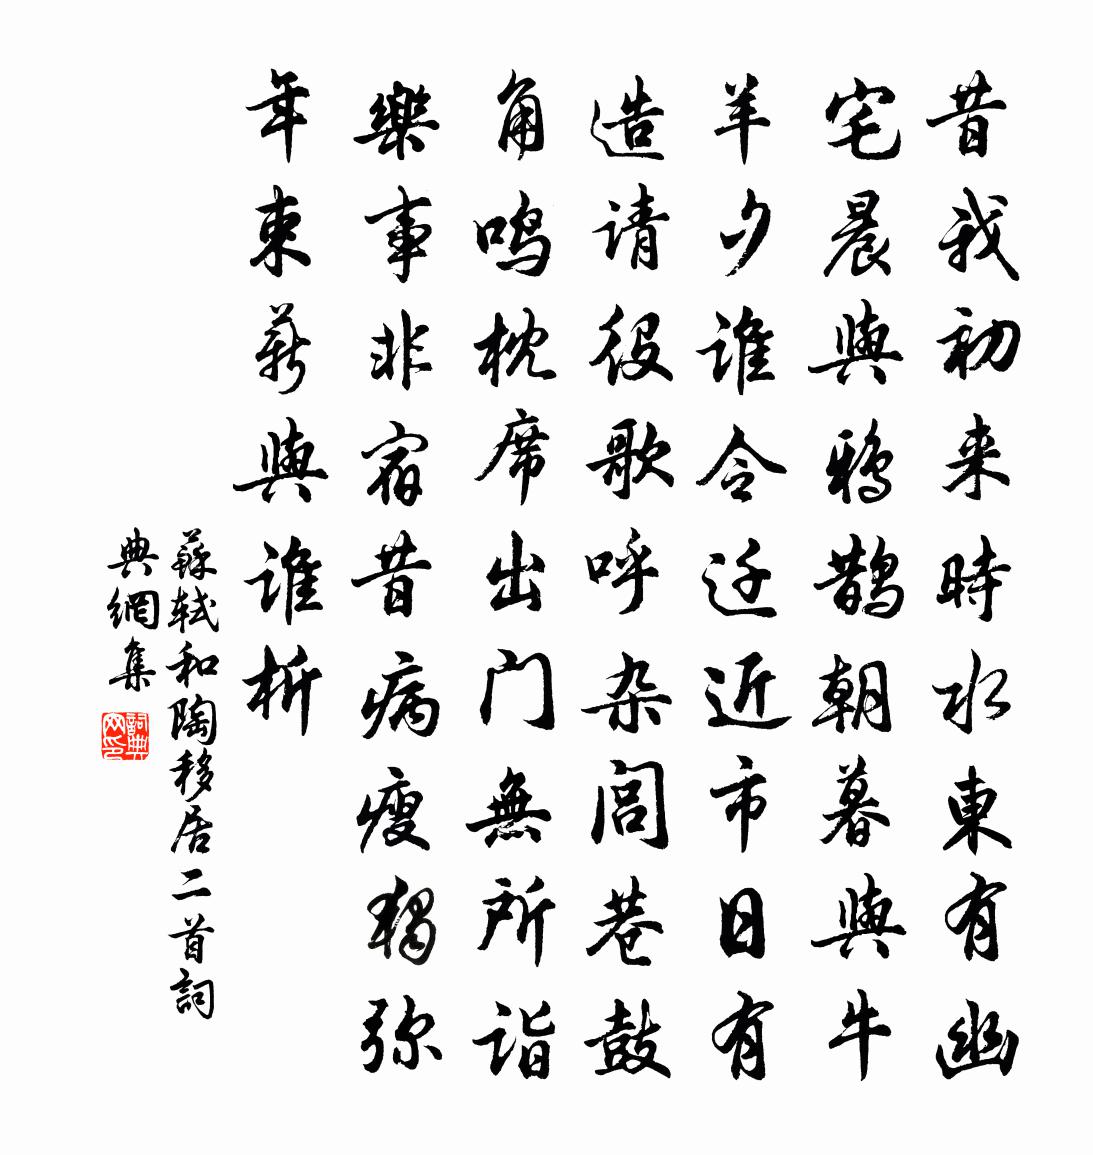 昔我初来時水東有幽
宅晨與鸦鹊朝暮與牛
羊夕谁令迁近市日有
造请役歌呼杂闾巷鼓
角鸣枕席出门無所诣
樂事非宿昔病瘦独弥
年束薪與谁析
蘇轼和陶移居二首詞
典網集
詞典
网印